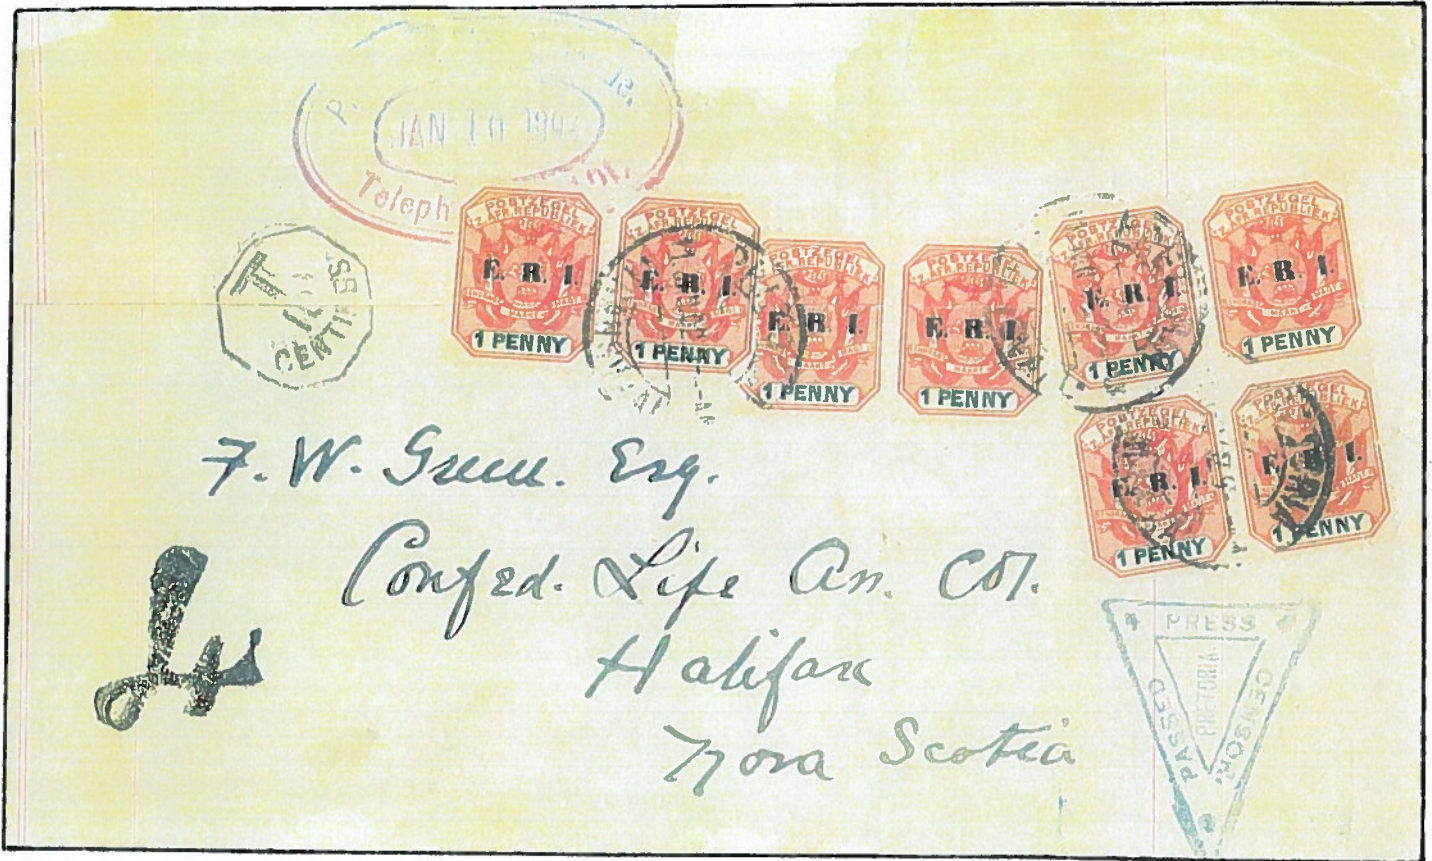 JAN 10
Teleph
T
CENTIMES
POSTZEGEL
Z. AFR. REPUBLIEK
E. R. I.
1 PENNY
POSTZEGEL
Z. AFR. REPUBLIEK
E. R. I.
1 PENNY
POSTZEGEL
Z. AFR. REPUBLIEK
E. R. I.
1 PENNY
POSTZEGEL
Z. AFR. REPUBLIEK
E. R. I.
1 PENNY
POSTZEGEL
Z. AFR. REPUBLIEK
E. R. I.
1 PENNY
POSTZEGEL
Z. AFR. REPUBLIEK
E. R. I.
1 PENNY
POSTZEGEL
Z. AFR. REPUBLIEK
E. R. I.
1 PENNY
POSTZEGEL
Z. AFR. REPUBLIEK
E. R. I.
1 PENNY
F. W. Green. Esq.
Confed. Life An. Co.
Halifax
Nova Scotia
4
PASSED
PRESS
CENSOR
PRETORIA